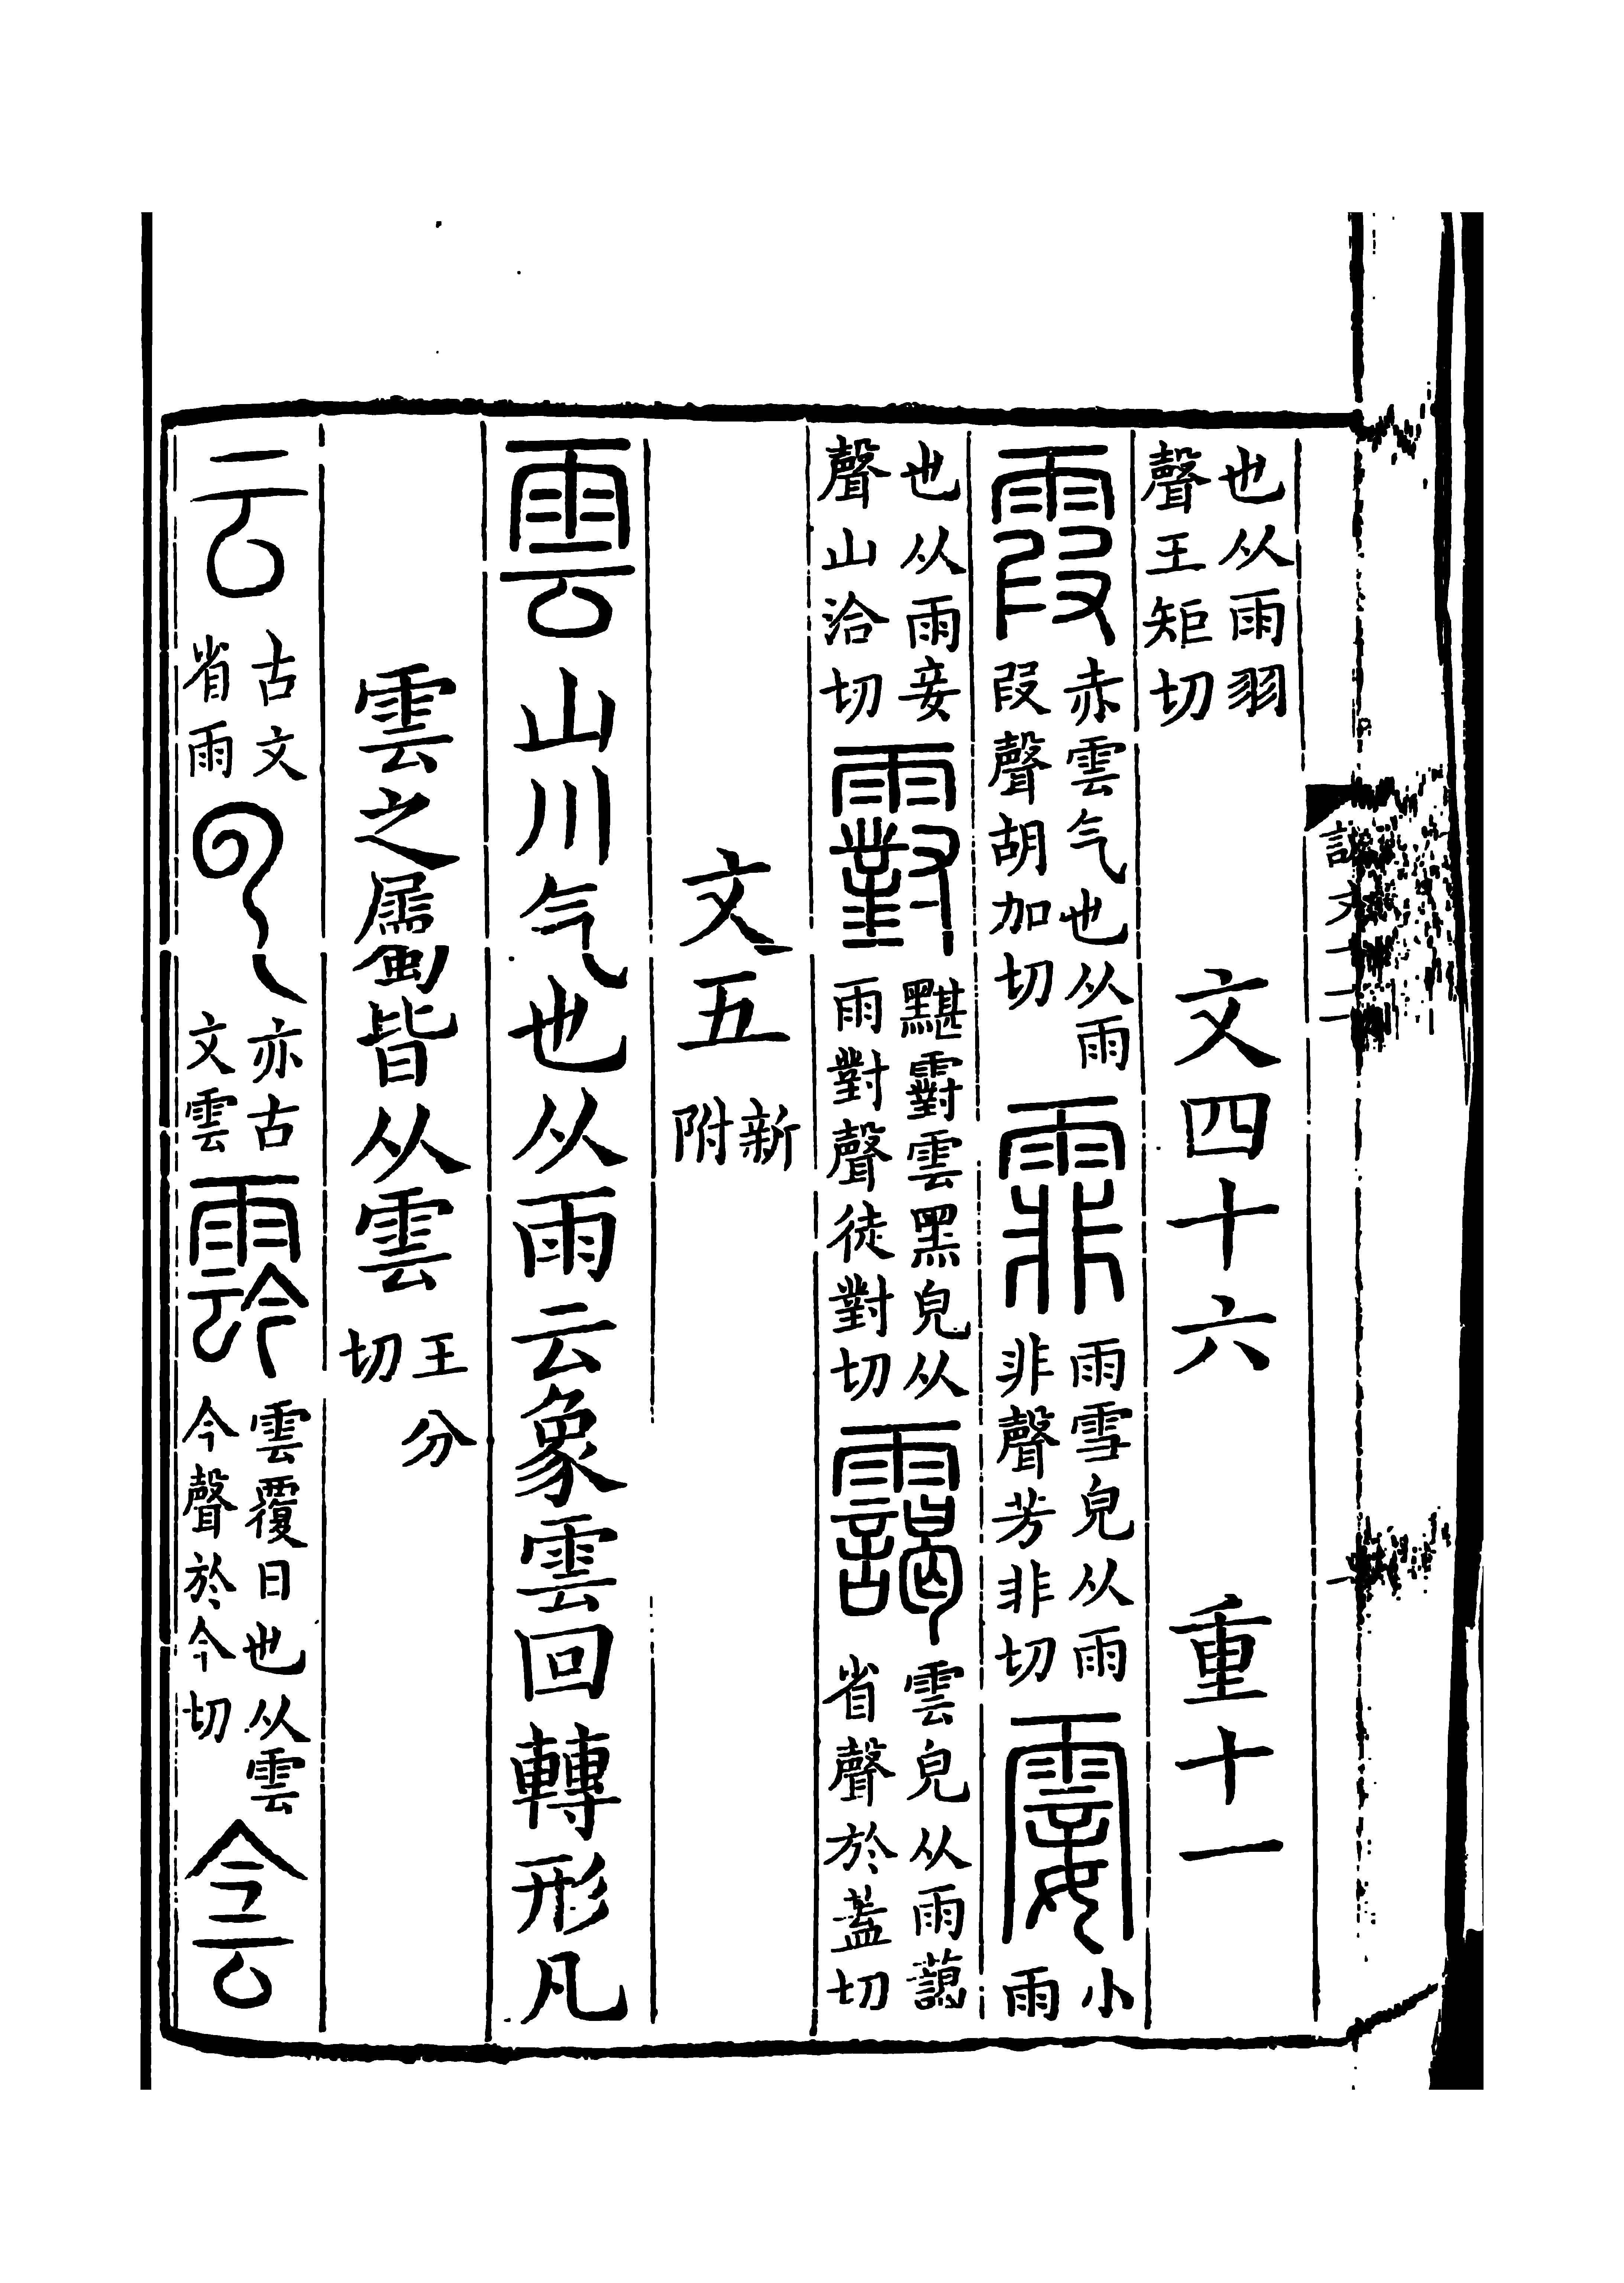 也从雨羽聲王矩切　文四十六　重十一
霞赤雲气也从雨叚聲胡加切霏雨雪皃从雨非聲芳非切霎小雨
也从雨妾聲山洽切䨴黮䨴雲黑皃从雨對聲徒對切靄雲皃从雨藹省聲於蓋切
文五新附
雲山川气也从雨云象雲回轉形凡
雲之屬皆从雲王分切
云古文省雨𠄔亦古文雲霒雲覆日也从雲今聲於今切侌